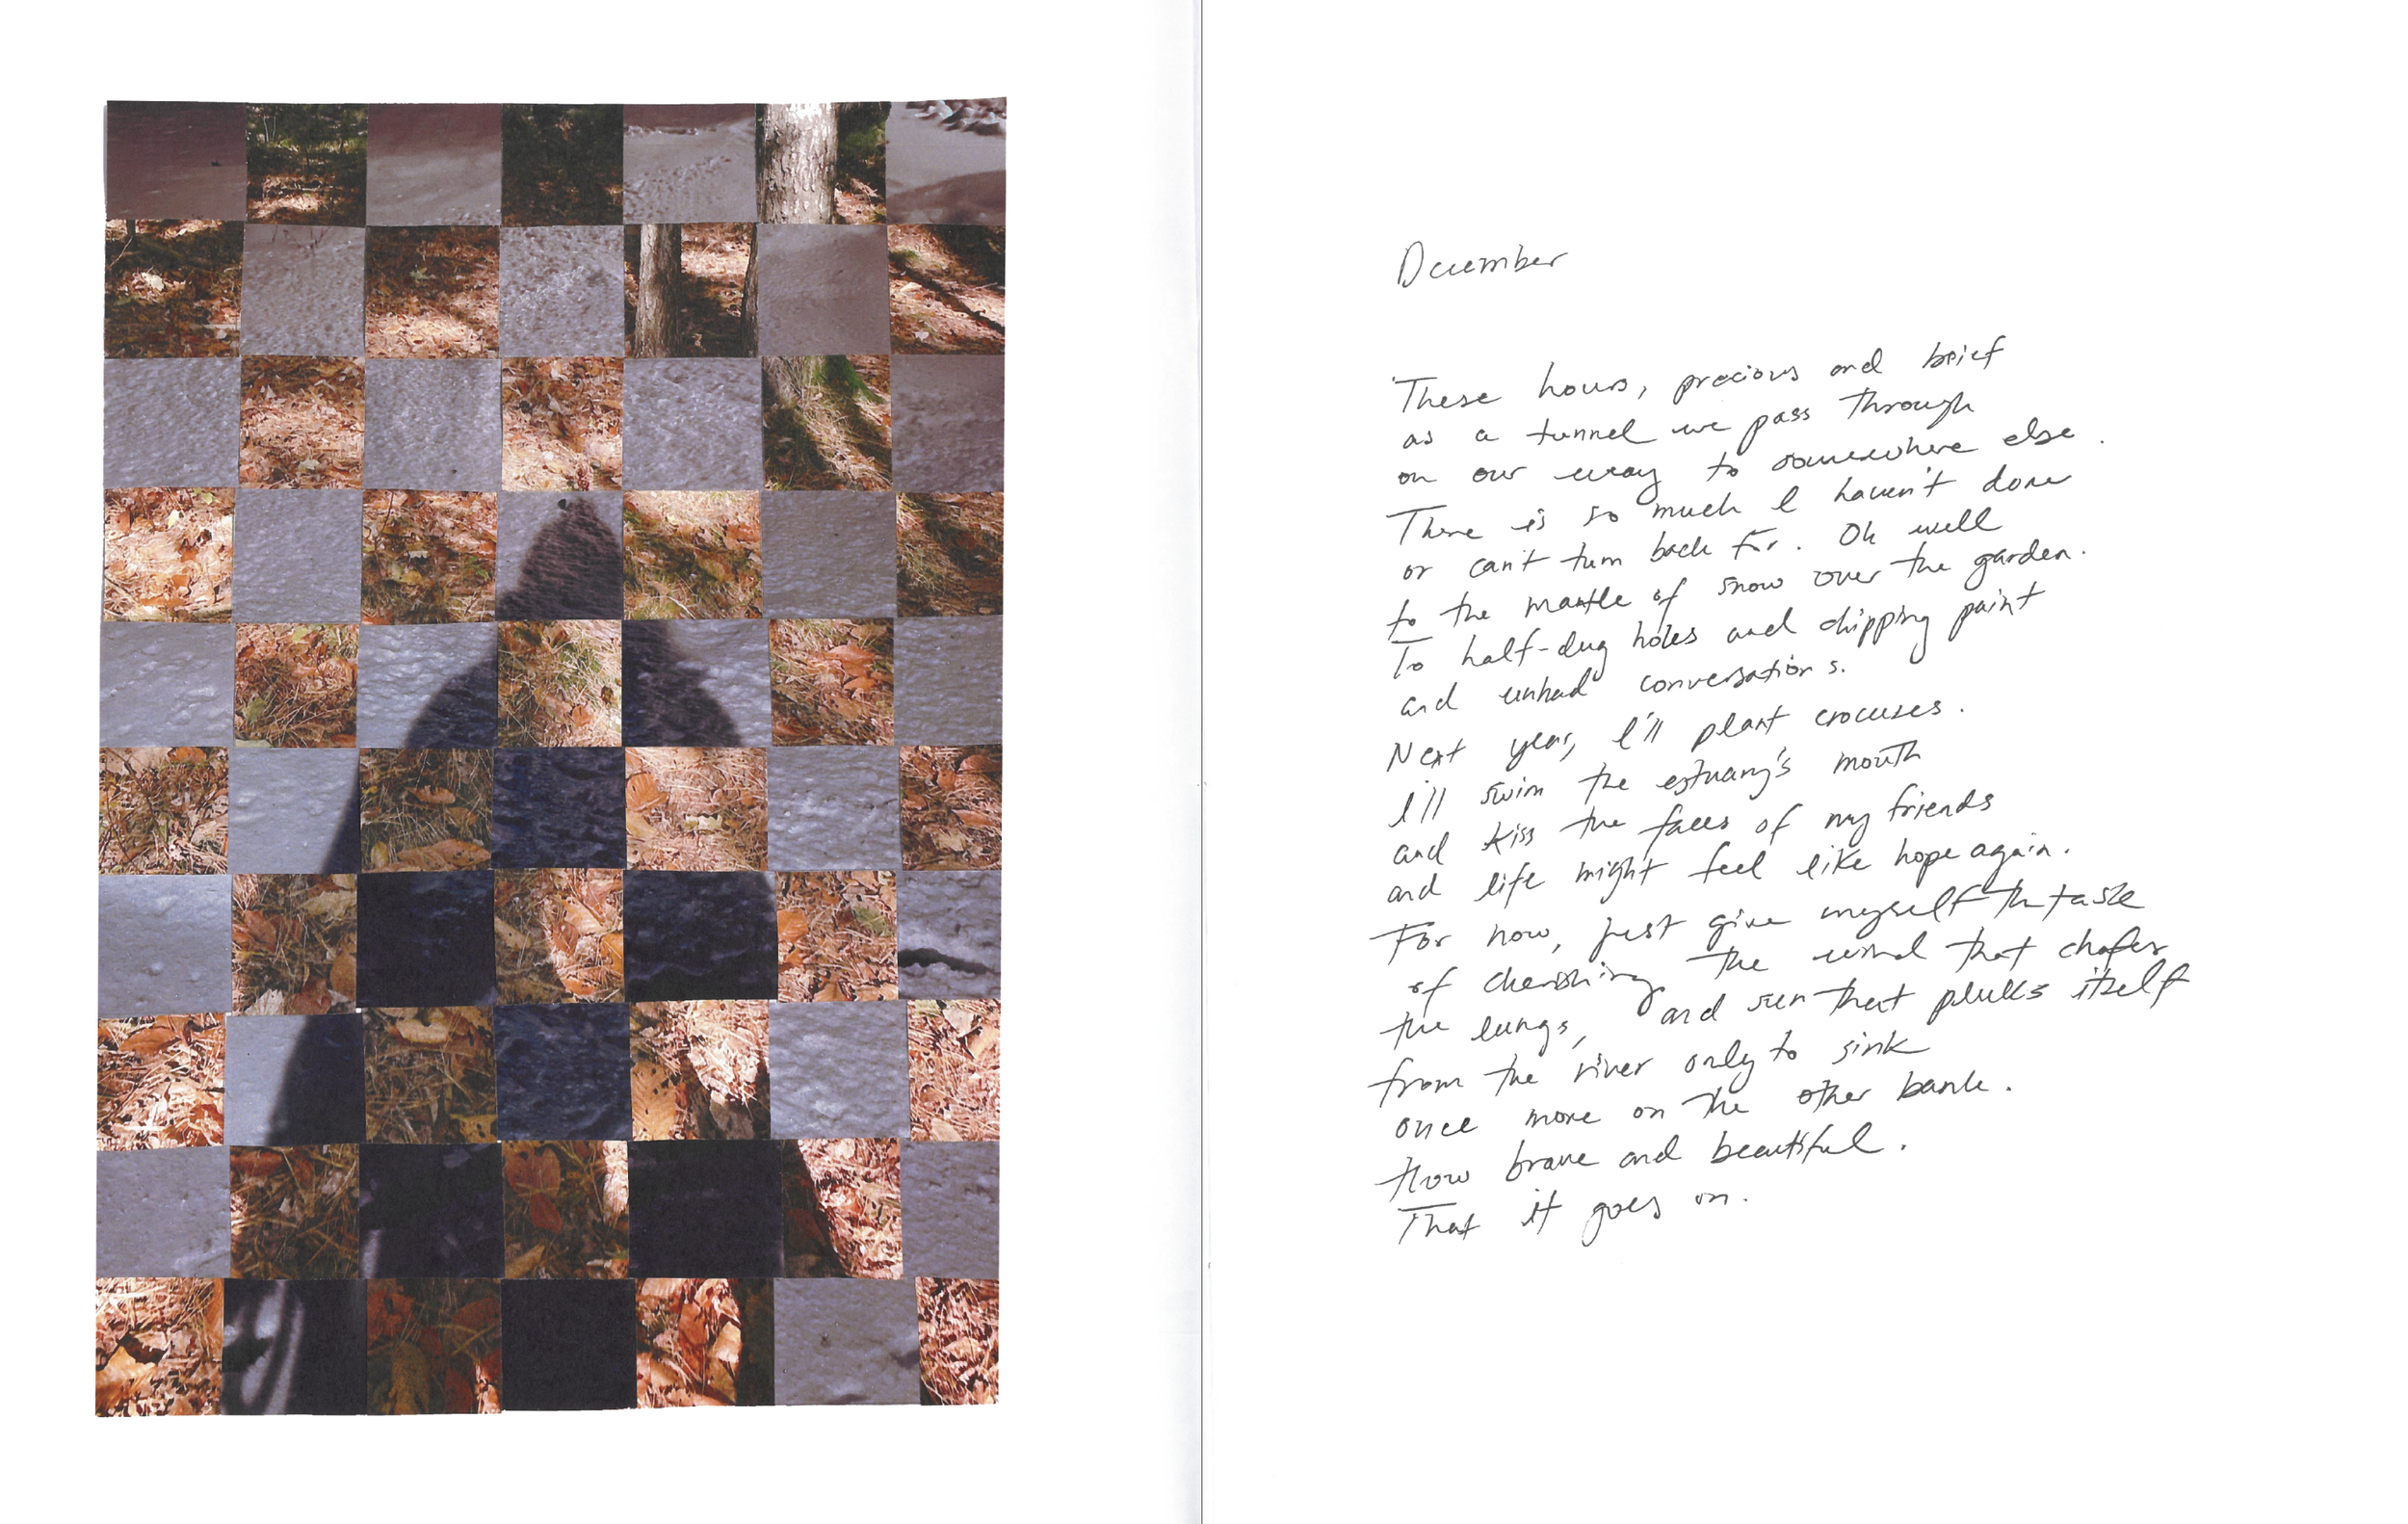 December
These hours, precious and brief
as a tunnel we pass through
on our way to somewhere else.
There is so much I haven't done
or can't turn back for. Oh well
to the mantle of snow over the garden.
To half-dug holes and chipping paint
and unhad conversations.
Next year, I'll plant crocuses.
I'll swim the estuary's mouth
and kiss the faces of my friends
and life might feel like hope again.
For now, just give myself th task
of cherishing the wind that chafes
the lungs, and sun that plucks itself
from the river only to sink
once more on the other bank.
How brave and beautiful.
That it goes on.